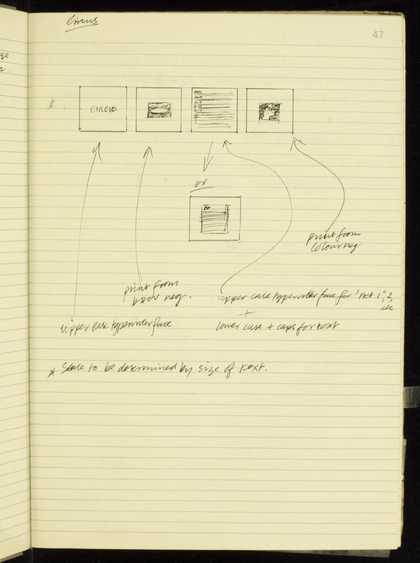 Circus
47
CIRCUS
or
print from
colour neg.
print from
b+w neg.
upper case typewriter face for 'Act 1', 2,
etc
+
upper case typewriter face
lower case + caps for text
* Scale to be determined by size of text.